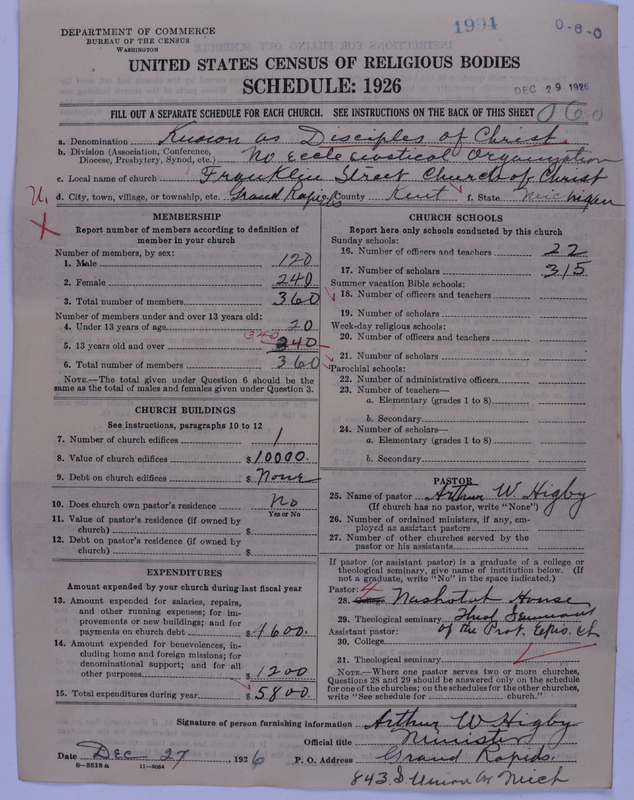 1994
0-6-0
DEPARTMENT OF COMMERCE
BUREAU OF THE CENSUS
WASHINGTON
UNITED STATES CENSUS OF RELIGIOUS BODIES
SCHEDULE: 1926
DEC 29 1926
FILL OUT A SEPARATE SCHEDULE FOR EACH CHURCH. SEE INSTRUCTIONS ON THE BACK OF THIS SHEET
060
a. Denomination Known as Disciples of Christ
b. Division (Association, Conference, Diocese, Presbytery, Synod, etc.) No Ecclesiastical Organization
c. Local name of church Franklin Street Church of Christ
d. City, town, village, or township, etc. Grand Rapids County Kent f. State Michigan
X
MEMBERSHIP
Report number of members according to definition of
member in your church
Number of members, by sex:
1. Male 120
2. Female 240
3. Total number of members 360
Number of members under and over 13 years old:
4. Under 13 years of age 20
340
5. 13 years old and over 340
6. Total number of members 360
NOTE.—The total given under Question 6 should be
same as the total of males and females given under Question 3.
CHURCH BUILDINGS
See instructions, paragraphs 10 to 12
7. Number of church edifices 1
8. Value of church edifices $10000.
9. Debt on church edifices $ None
10. Does church own pastor's residence No
Yes or No
11. Value of pastor's residence (if owned by
church) $
12. Debt on pastor's residence (if owned by
church) $
EXPENDITURES
Amount expended by your church during last fiscal year
13. Amount expended for salaries, repairs,
and other running expenses; for im-
provements or new buildings; and for
payments on church debt $4600.
14. Amount expended for benevolences, in-
cluding home and foreign missions; for
denominational support; and for all
other purposes $1200
15. Total expenditures during year $5800.
CHURCH SCHOOLS
Report here only schools conducted by this church
Sunday schools:
16. Number of officers and teachers 22
17. Number of scholars 315
Summer vacation Bible schools:
18. Number of officers and teachers
19. Number of scholars
Week-day religious schools:
20. Number of officers and teachers
21. Number of scholars
Parochial schools:
22. Number of administrative officers
23. Number of teachers—
a. Elementary (grades 1 to 8)
b. Secondary
24. Number of scholars—
a. Elementary (grades 1 to 8)
b. Secondary
PASTOR
25. Name of pastor Arthur W. Higby
(If church has no pastor, write "None")
26. Number of ordained ministers, if any, em-
ployed as assistant pastors
27. Number of other churches served by the
pastor or his assistants
If pastor (or assistant pastor) is a graduate of a college or
theological seminary, give name of institution below. (If
not a graduate, write "No" in the space indicated.)
Pastor: 4
28. College Nashotah House
29. Theological seminary
Assistant pastor: of the Prot. Epis. Ch
30. College
31. Theological seminary
NOTE.—Where one pastor serves two or more churches,
Questions 28 and 29 should be answered only on the schedule
for one of the churches; on the schedules for the other churches,
write "See schedule for church."
Signature of person furnishing information Arthur W Higby
Official title Minister
Date Dec 27, 1926 P. O. Address Grand Rapids.
8-5518a 11-9054
843 S Union Av Mich